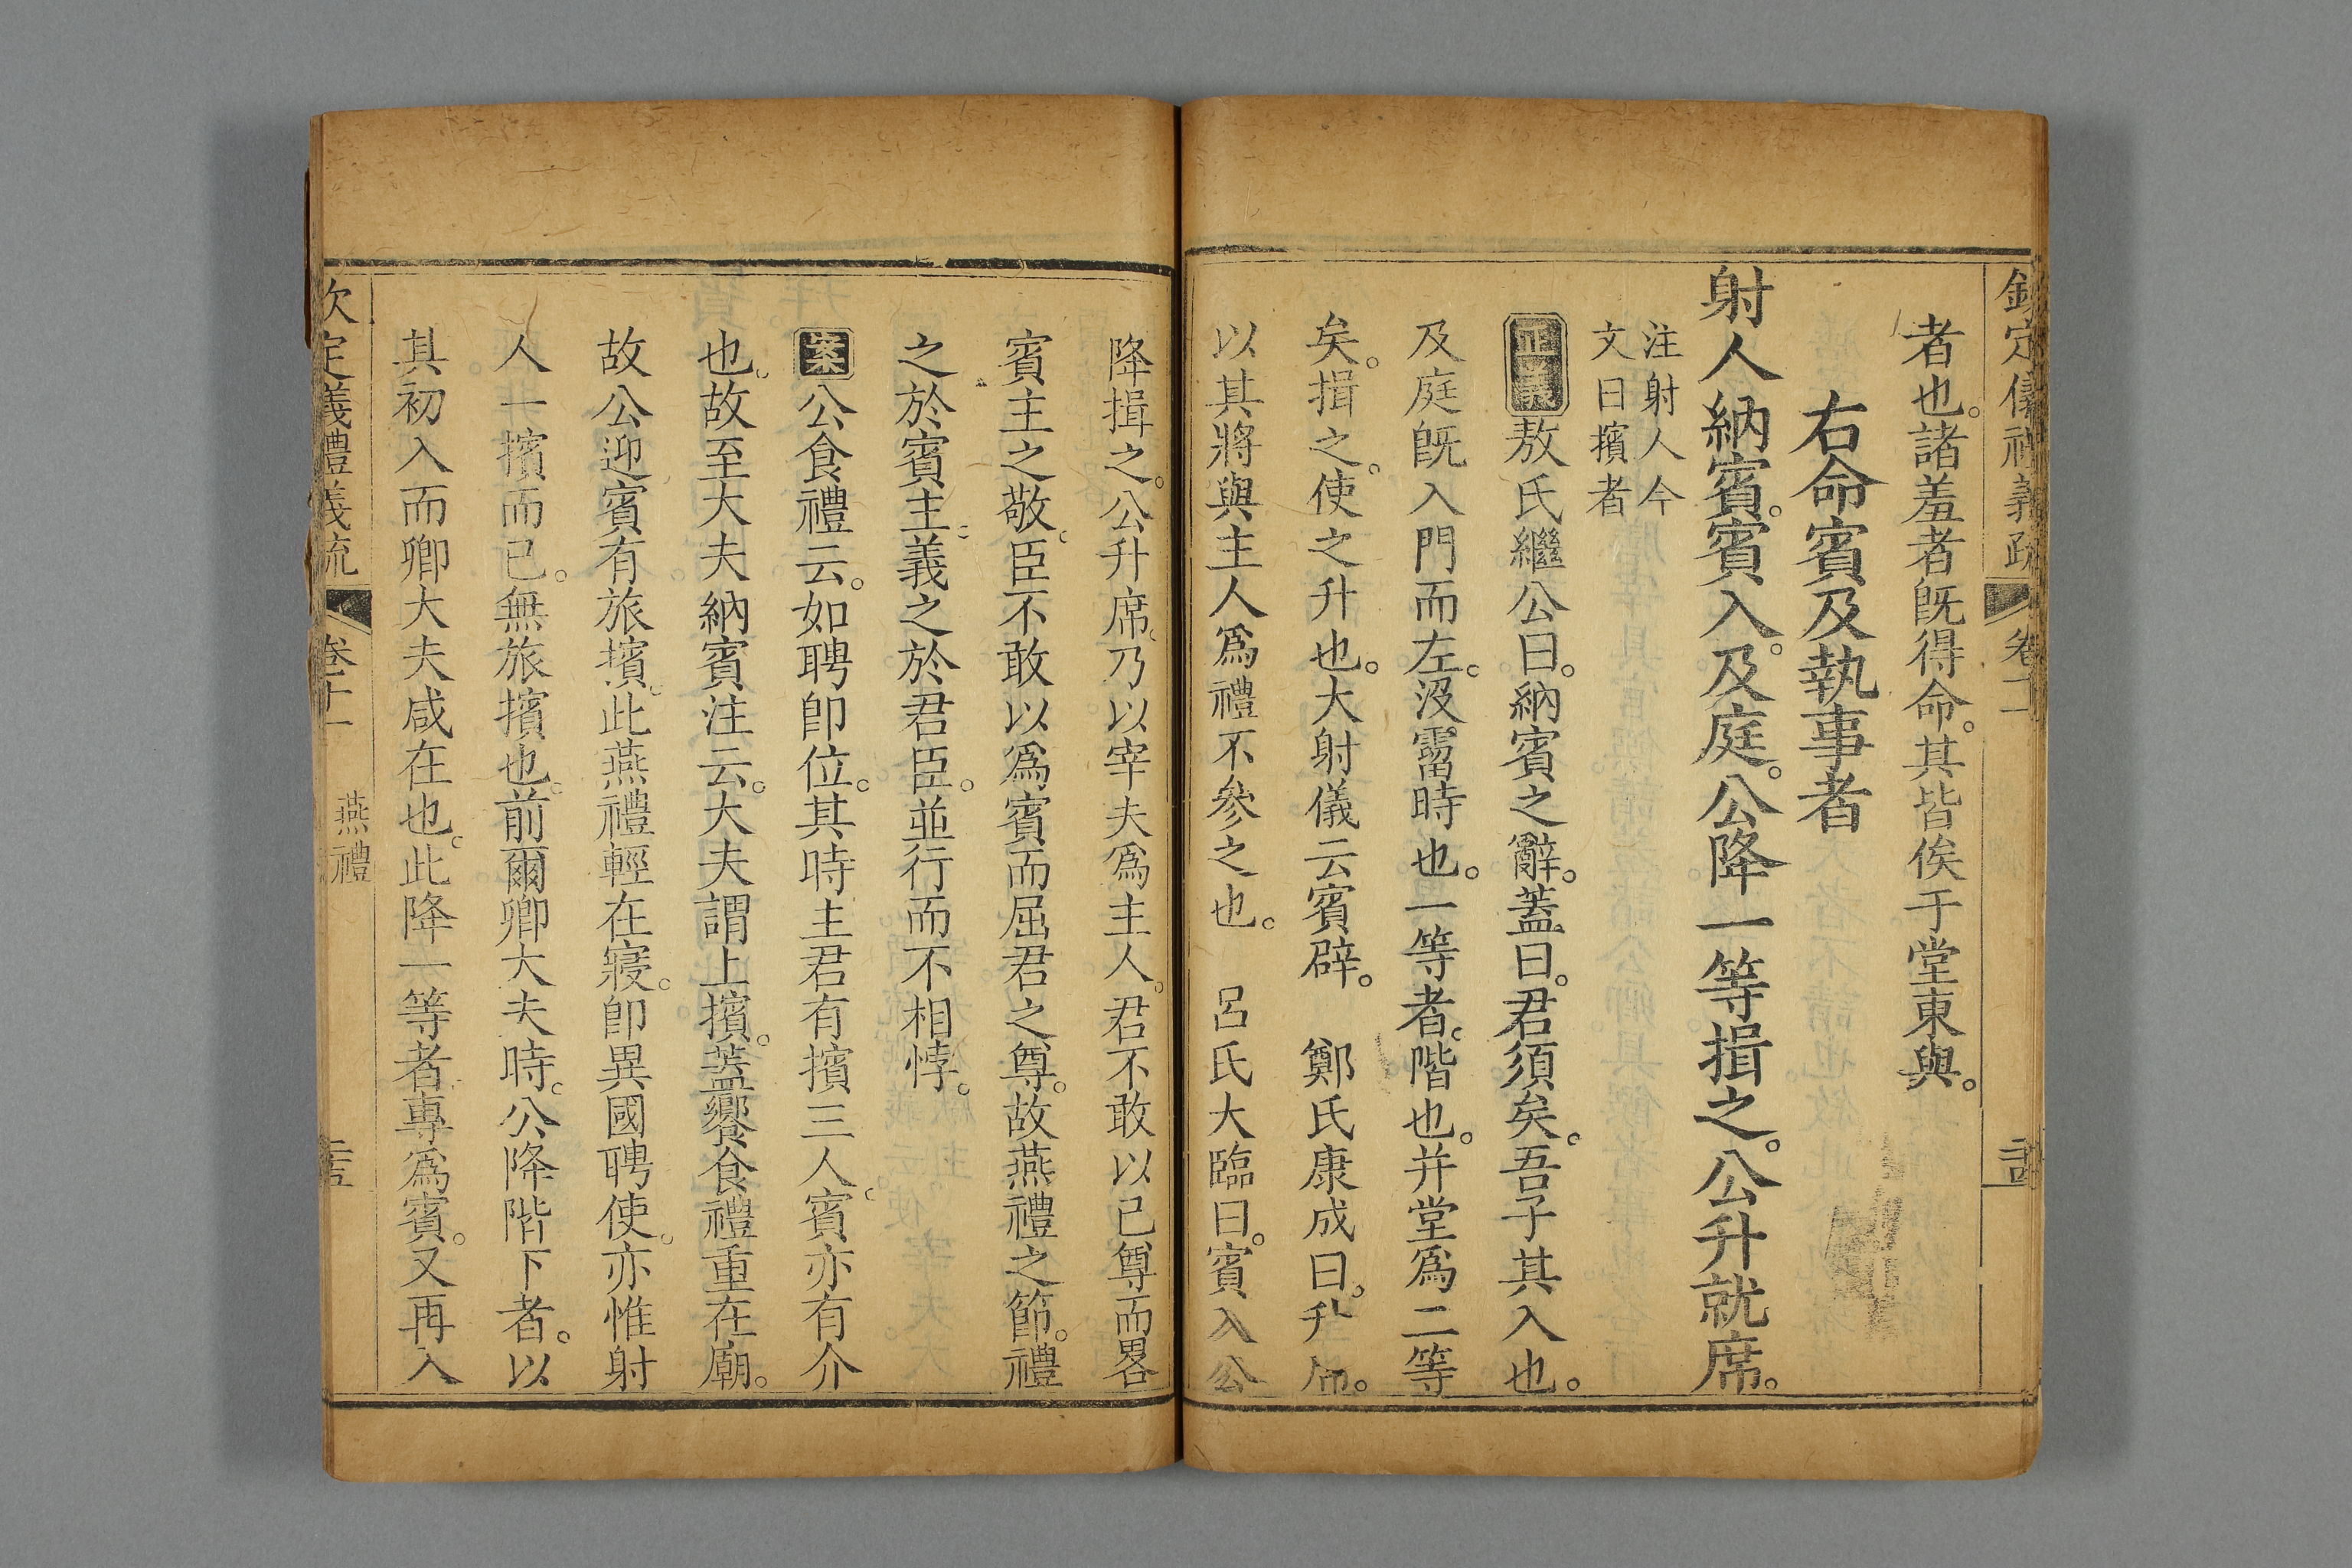 欽定儀禮義疏 卷十一 二十四
者也。諸羞者旣得命。其皆俟于堂東與。
右命賓及執事者
射人納賓。賓入。及庭。公降一等揖之。公升就席。
注射人今
文曰擯者
正義敖氏繼公曰。納賓之辭。蓋曰。君須矣。吾子其入也。
及庭旣入門而左。沒霤時也。一等者。階也。幷堂爲二等
矣。揖之。使之升也。大射儀云賓辟。 鄭氏康成曰。升
以其將與主人爲禮不參之也。 呂氏大臨曰。賓入公
降揖之。公升席。乃以宰夫爲主人。君不敢以已尊而畧
賓主之敬。臣不敢以爲賓而屈君之尊。故燕禮之節。禮
之於賓主。義之於君臣。並行而不相悖。
案公食禮云。如聘卽位。其時主君有擯三人。賓亦有介
也。故至大夫納賓注云。大夫謂上擯。蓋饗食禮重在廟。
故公迎賓有旅擯。此燕禮輕在寢。卽異國聘使。亦惟射
人一擯而已。無旅擯也。前爾卿大夫時。公降階下者。以
其初入而卿大夫咸在也。此降一等者。專爲賓。又再入
欽定義禮義疏 卷十一 燕禮 二十五